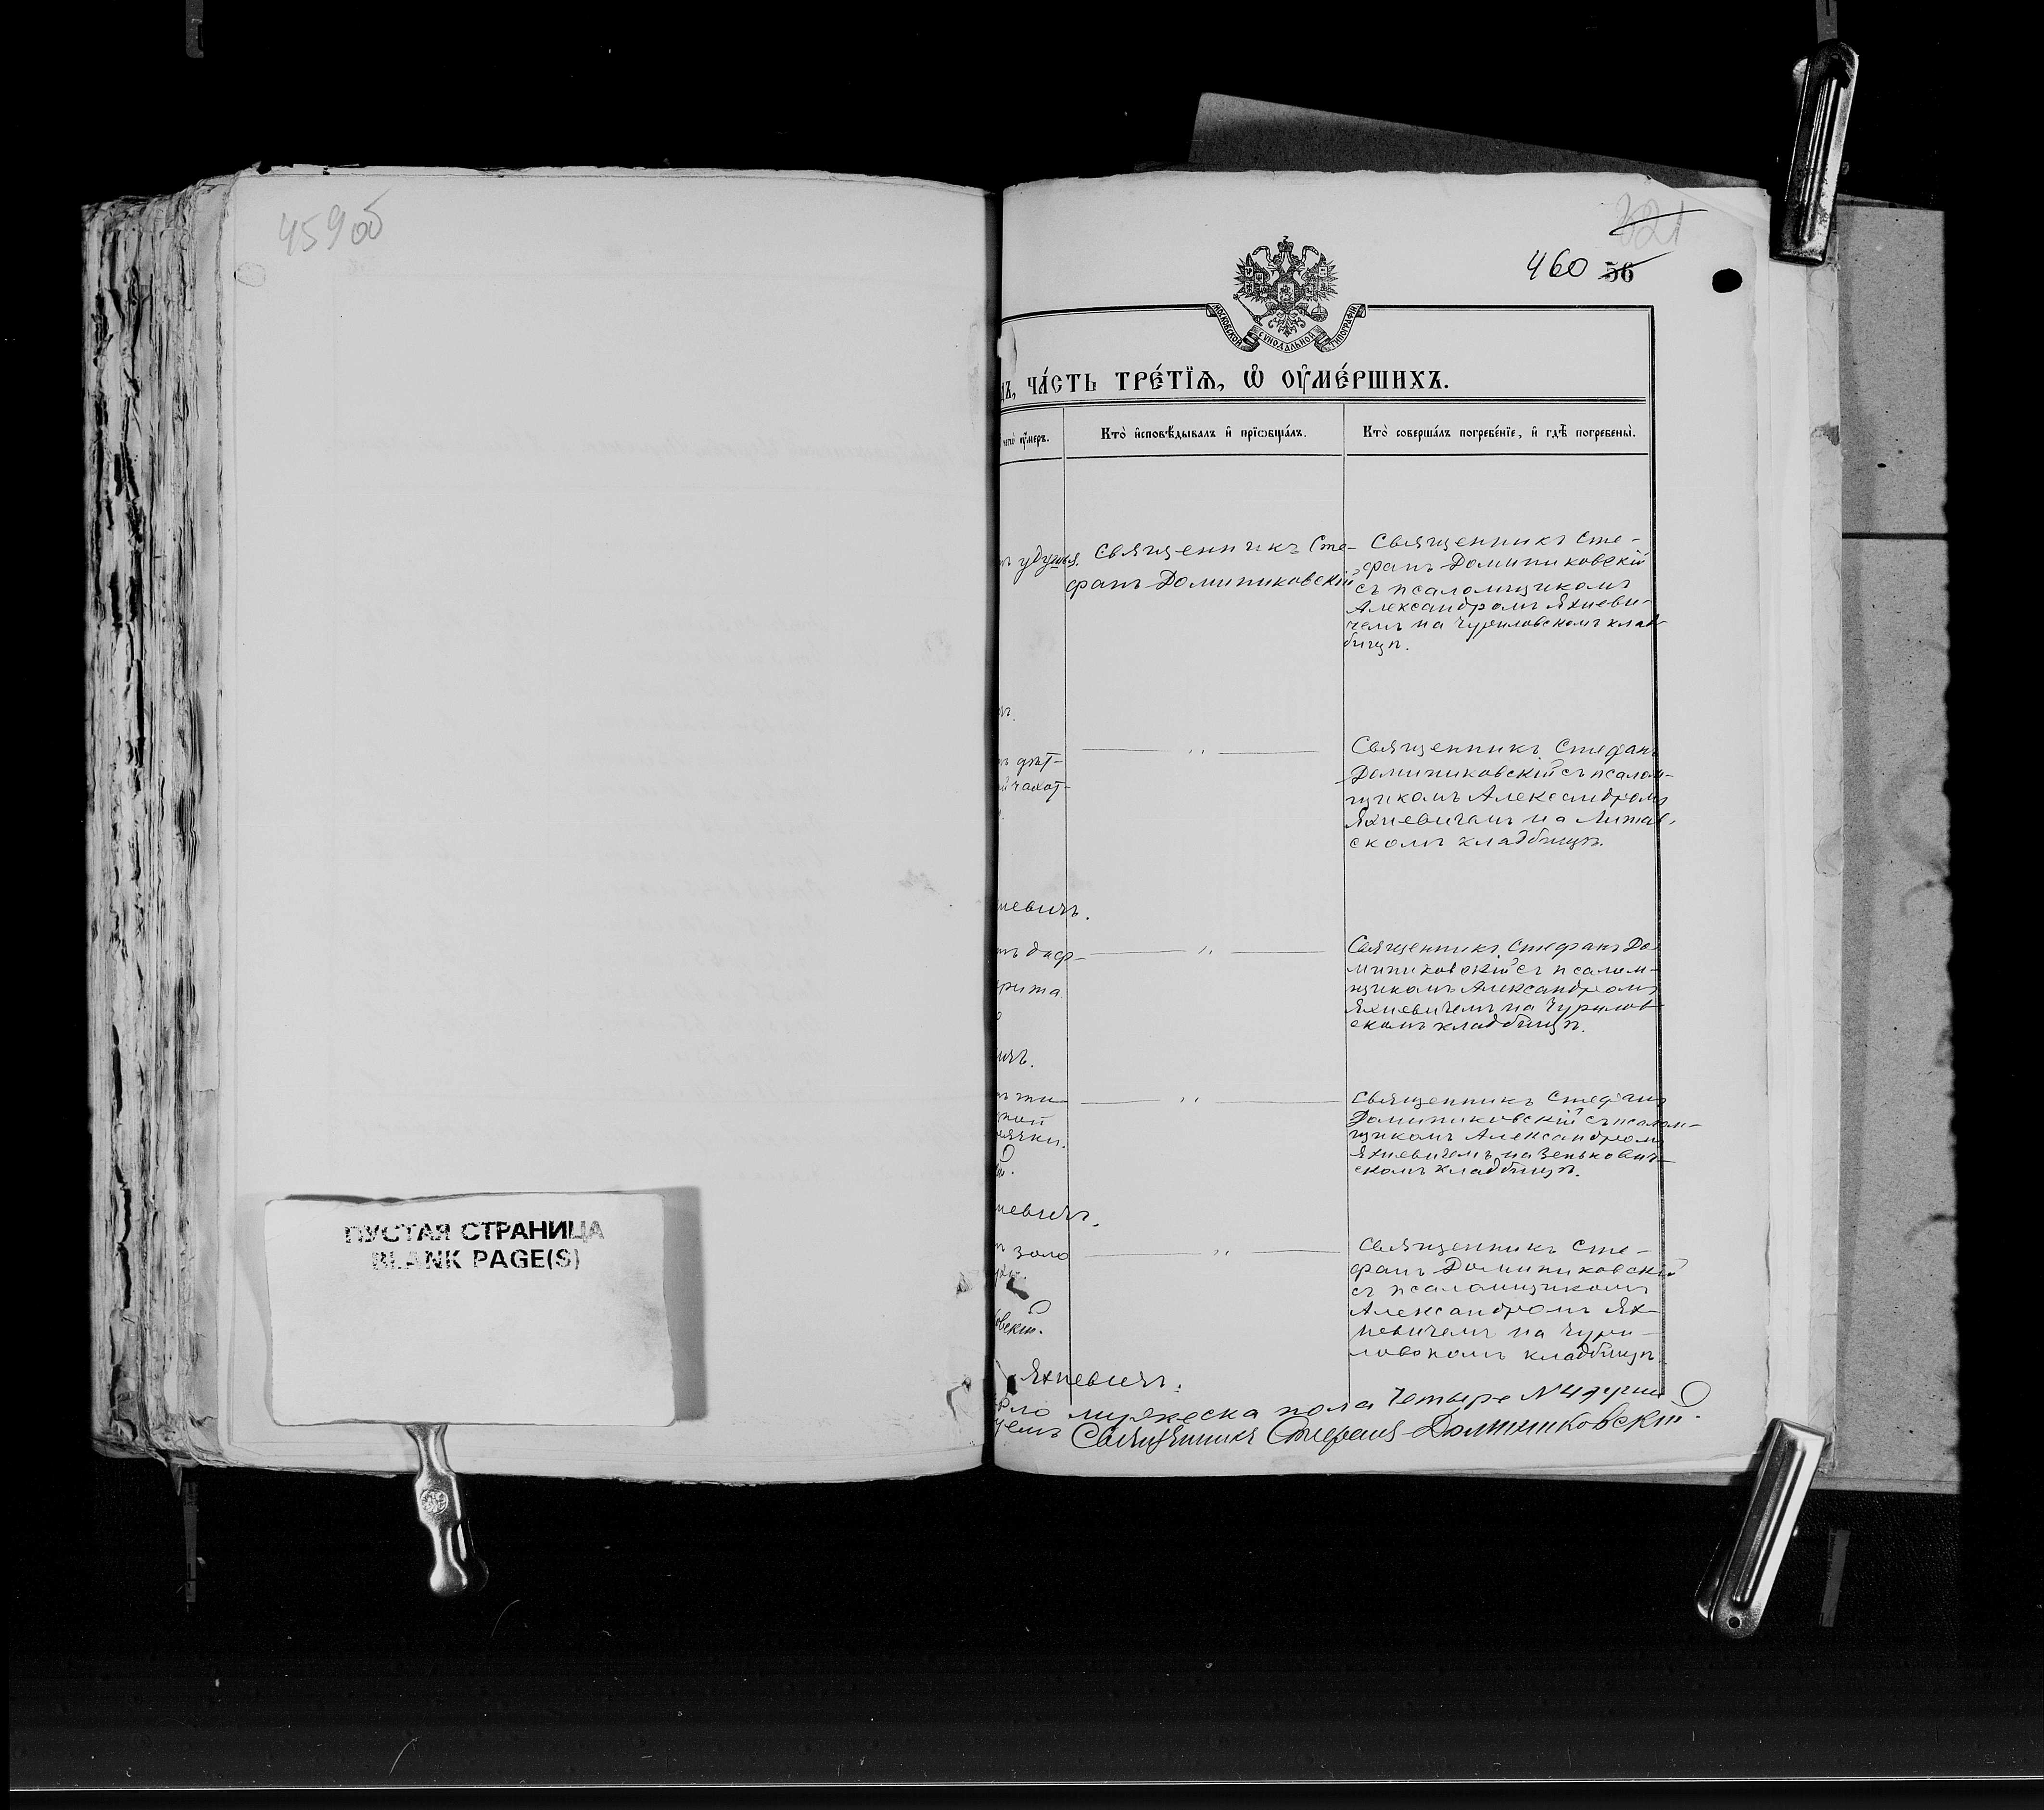 459 об
ПУСТАЯ СТРАНИЦА
BLANK PAGE(S)
321
460 56
МОСКОВСКОЙ СѴНОДАЛЬНОЙ ТИПОГРАФІИ
ЧА́СТЬ ТРЕ́ТЇѦ, Ѿ ОУ҆МЕ́РШИХЪ.
чегѡ̀ оу҆́меръ.
Кто̀ и҆сповѣ́дывалъ и҆ прїѡбща́лъ.
Кто̀ соверша́лъ погребе́нїе, и҆ гдѣ̀ погребены̀.
удушья.
Священникъ Сте-
фанъ Доминиковскій
Священникъ Сте-
фанъ Доминиковскій
съ псаломщикомъ
Александромъ Яхневи-
чемъ на Чуриловскомъ клад-
бищѣ.
дѣт-
чахот-
Священникъ Стефанъ
Доминиковскій съ псалом-
щикомъ Александромъ
Яхневичемъ на Литав-
скомъ кладбищѣ.
невичъ.
диф-
рита
Священникъ Стефанъ До
миниковскій съ псалом-
щикомъ Александромъ
Яхневичемъ на Чурилов-
скомъ кладбищѣ.
ичъ.
Священникъ Стефанъ
Доминиковскій съ псалом-
щикомъ Александромъ
Яхневичемъ на Зенькович-
скомъ кладбищѣ.
невичъ.
золо
Священникъ Сте-
фанъ Доминиковскій
съ псаломщикомъ
Александромъ Ях-
невичемъ на Чури-
ловскомъ кладбищѣ.
овскій.
Яхневичъ.
мужеска пола четыре №4
Священникъ Стефанъ Доминиковскій.